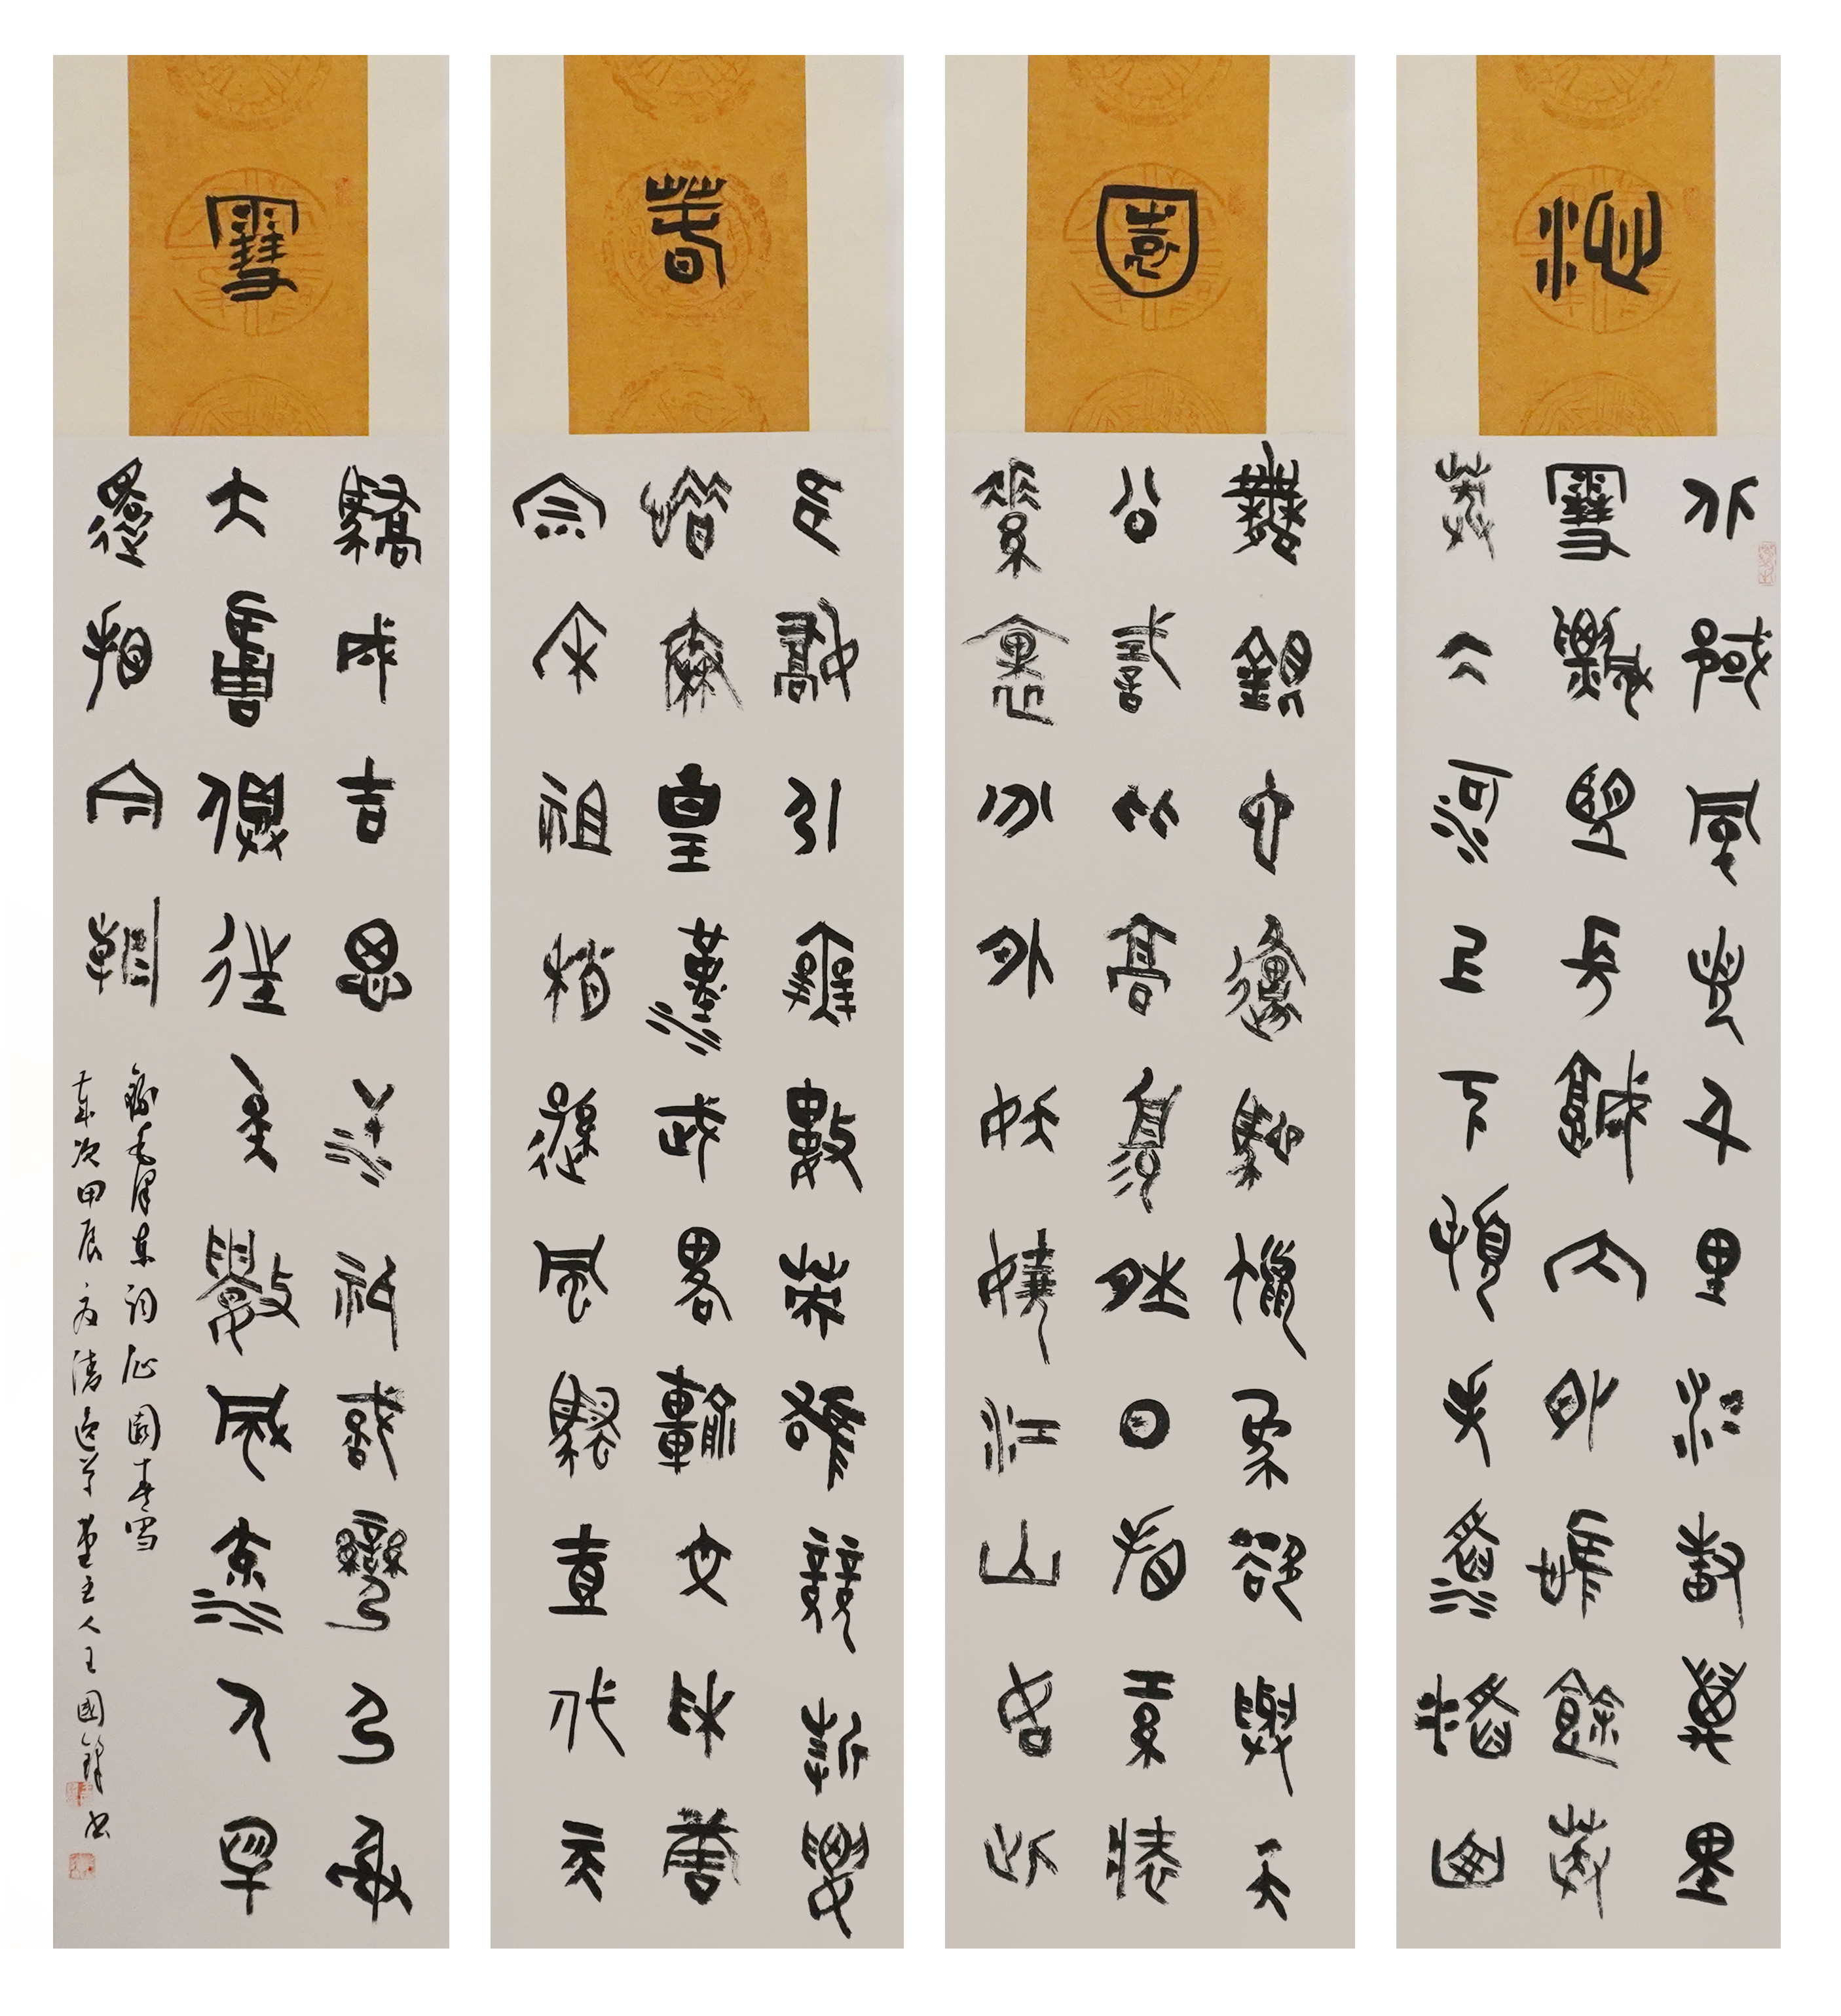 沁
北國風光千里冰封萬里
雪飄望長城內外惟餘莽
莽大河上下頓失滔滔山
園
舞銀蛇原馳蠟象欲與天
公試比高須晴日看紅裝
素裹分外妖嬈江山如此
春
多嬌引無數英雄競折腰
惜秦皇漢武略輸文采唐
宗宋祖稍遜風騷一代天
雪
驕成吉思汗只識彎弓射
大雕俱往矣數風流人物
還看今朝
錄毛澤東詞沁園春雪
歲次甲辰清逸草堂主人王國鋒書